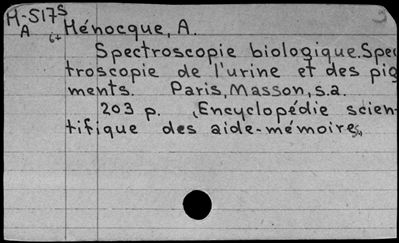 H-517s
A
Hénocque, A.
Spectroscopie biologique. Spec
troscopie de l'urine et des pig
ments. Paris, Masson, s.a.
203 p. (Encyclopédie scien-
tifique des aide-mémoire